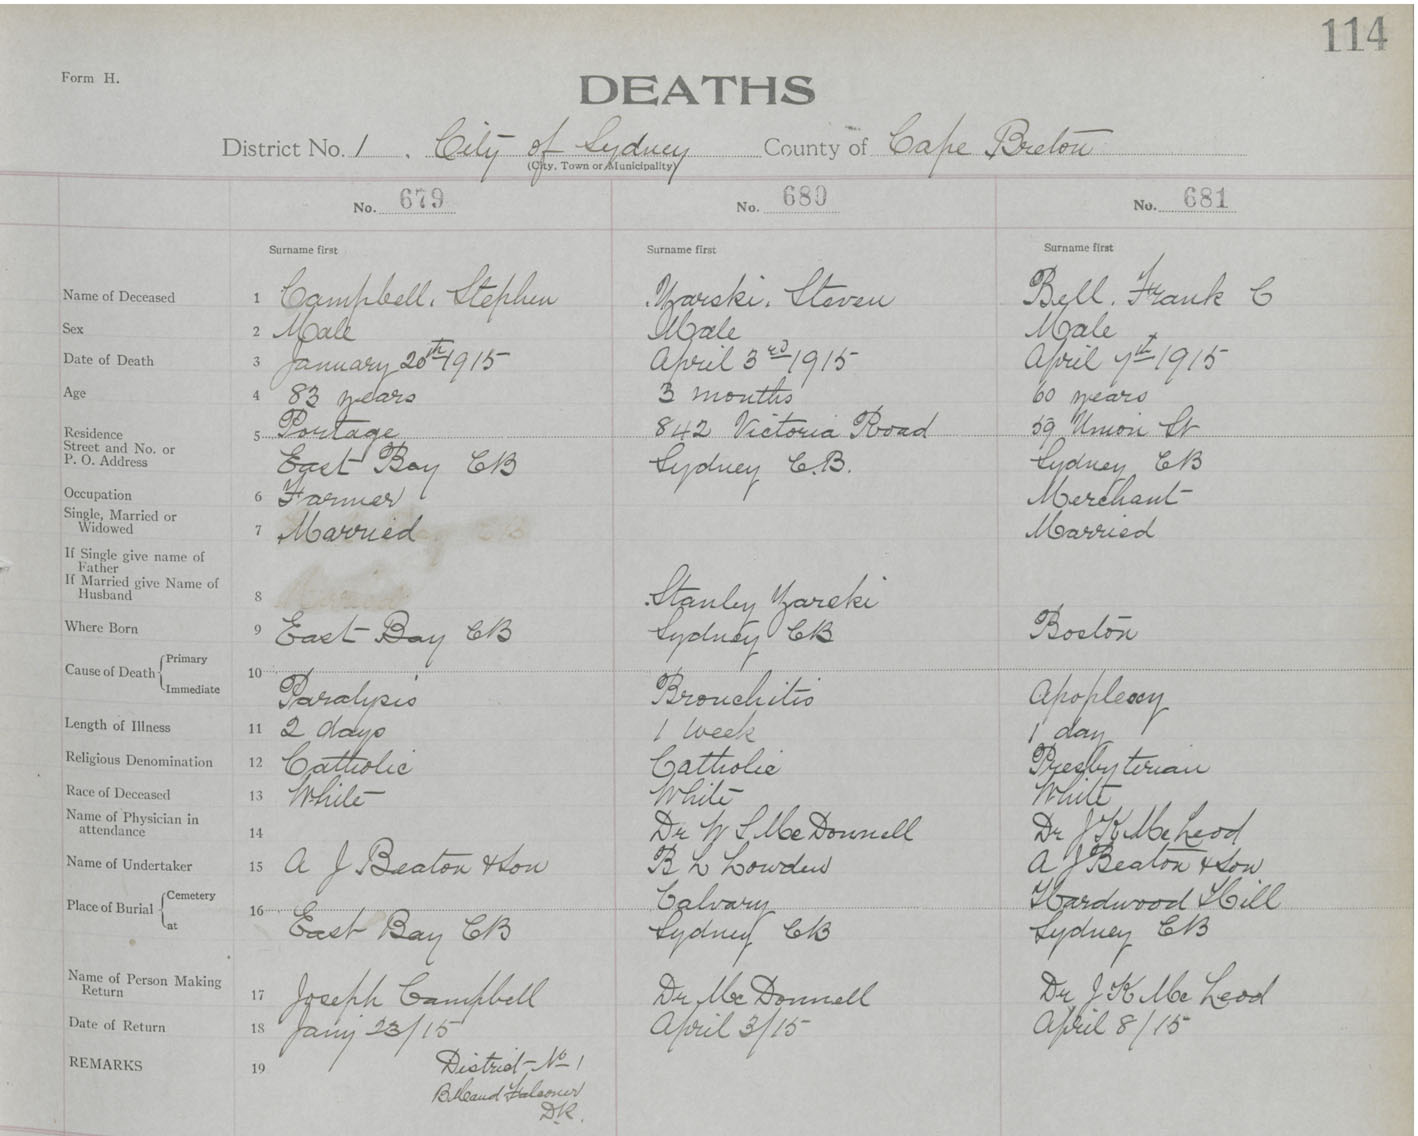 114
Form H.
DEATHS
District No. 1 . City of Sydney County of Cape Breton
(City, Town or Municipality)
No. 679 No. 680 No. 681
Surname first Surname first Surname first
Name of Deceased 1 Campbell, Stephen Yarski, Steven Bell, Frank C
Sex 2 Male Male Male
Date of Death 3 January 20th 1915 April 3rd 1915 April 7th 1915
Age 4 83 years 3 months 60 years
Residence 5 Portage 842 Victoria Road 59 Union St
Street and No. or
P. O. Address East Bay CB Sydney C.B. Sydney CB
Occupation 6 Farmer Merchant
Single, Married or
Widowed 7 Married Married
If Single give name of
Father
If Married give Name of
Husband 8 Stanley Yarski
Where Born 9 East Bay CB Sydney CB Boston
Cause of Death Primary 10
Immediate Paralysis Bronchitis Apoplexy
Length of Illness 11 2 days 1 week 1 day
Religious Denomination 12 Catholic Catholic Presbyterian
Race of Deceased 13 White White White
Name of Physician in
attendance 14 Dr W S McDonnell Dr J K McLeod
Name of Undertaker 15 A J Beaton & Son R L Lowden A J Beaton & Son
Place of Burial Cemetery 16 Calvary Hardwood Hill
at East Bay CB Sydney CB Sydney CB
Name of Person Making
Return 17 Joseph Campbell Dr McDonnell Dr J K McLeod
Date of Return 18 Jany 23/15 April 3/15 April 8/15
REMARKS 19 District No 1
B Maud Falconer
D.R.